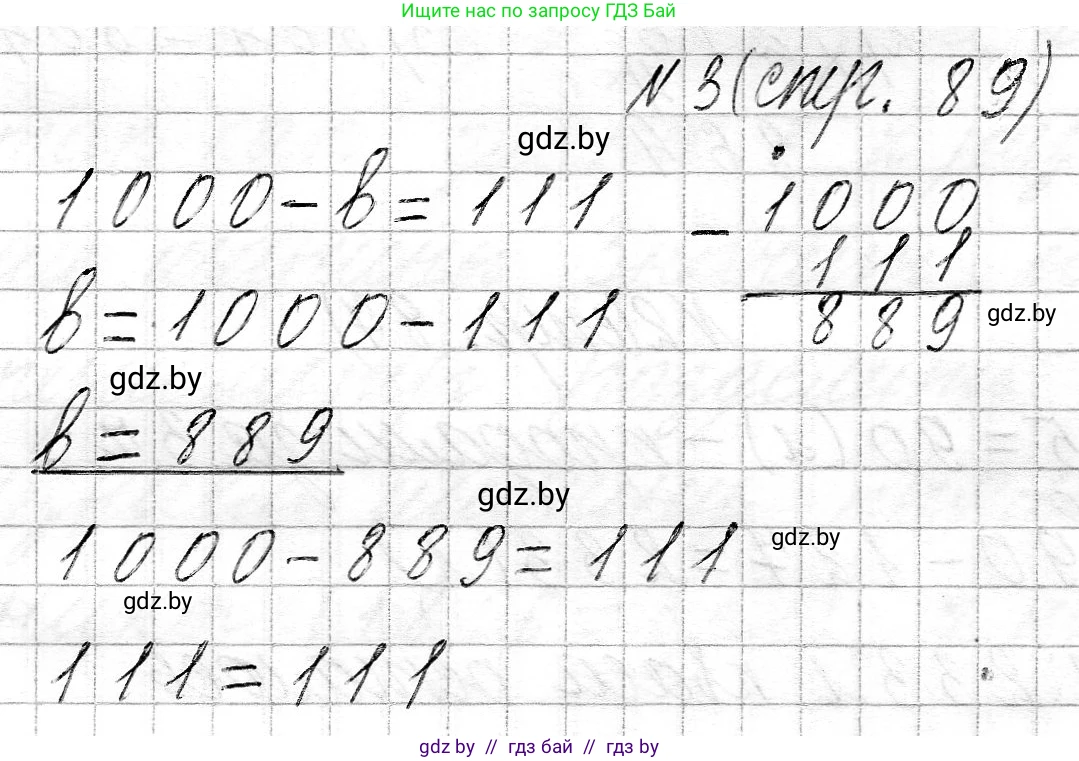 Ищите нас по запросу ГДЗ Бай
№ 3 (стр. 89)
gdz.by
1000 - в = 111
- 1000
111
889
gdz.by
в = 1000 - 111
gdz.by
в = 889
gdz.by
1000 - 889 = 111
gdz.by
gdz.by
111 = 111
gdz by // гдз бай // гдз by